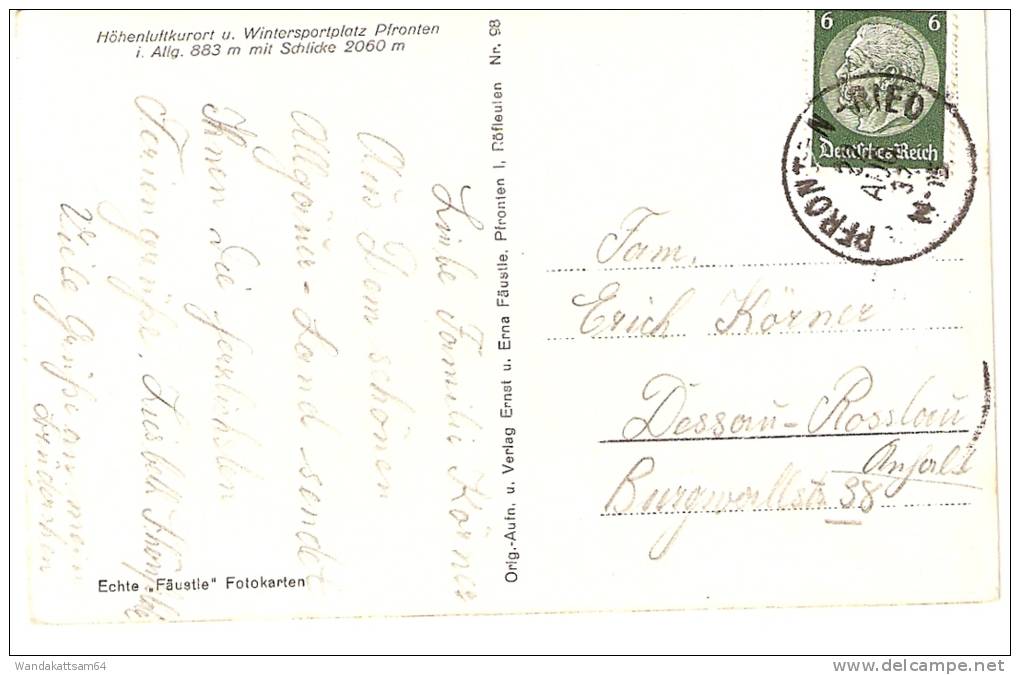 Höhenluftkurort u. Wintersportplatz Pfronten
i. Allg. 883 m mit Schlicke 2060 m
Liebe Familie Körner
Aus Dem schönen
Allgäuer-Land sendet
Ihnen die herzlichsten
Feriengrüße, Lisbeth
Viele Grüße an mein
Brüderchen
Echte „Fäustle" Fotokarten
Orig.-Aufn. u. Verlag Ernst u. Erna Fäustle, Pfronten I, Röfleuten Nr. 98
6 6
Deutsches Reich
PFRONTEN-RIED
AUG
37
Fam.
Erich Körner
Dessau-Rosslau
Anhalt
Burgwallstr 38
Wandakattsam64
delcampe.net